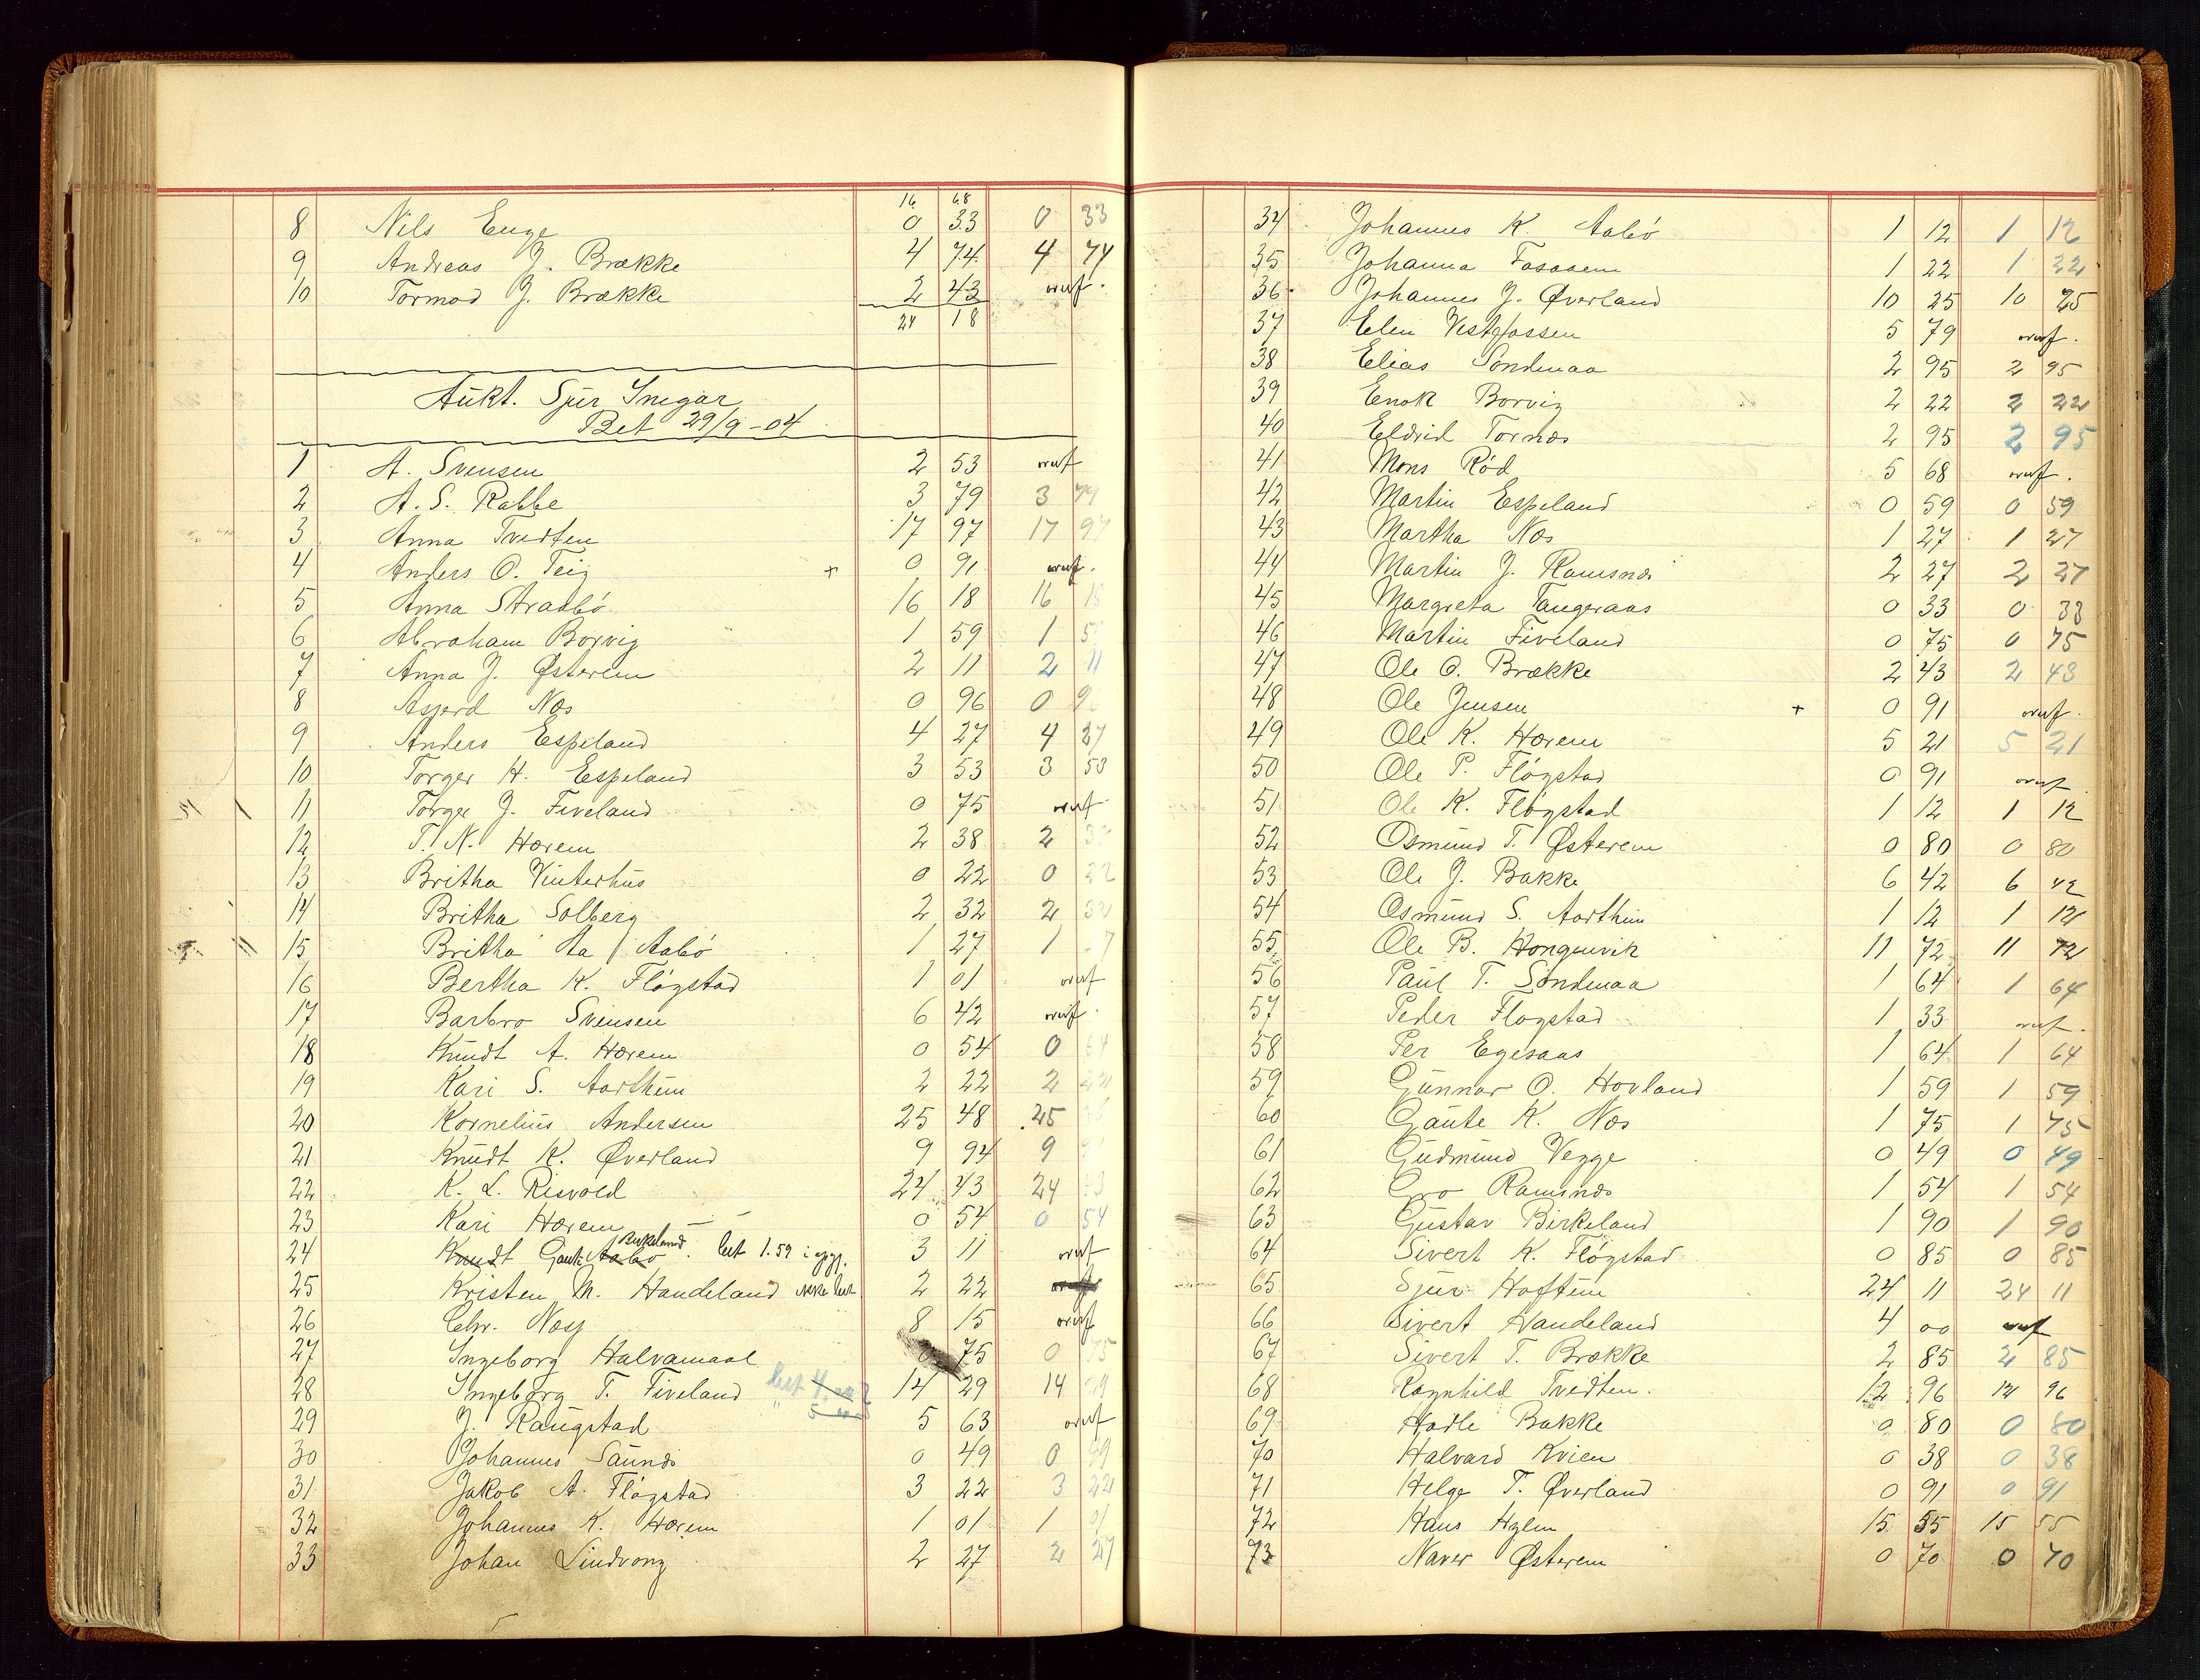 16 68
8 Nils Enge 0 33 0 33
9 Andreas J. Brække 4 74 4 74
10 Tormod J. Brække 2 43 overf.
24 18
Aukt. Sjur Snegar
Bet 29/9-04
1 A. Svensen 2 53 overf
2 A. S. Rabbe 3 79 3 79
3 Anna Tvedten 17 97 17 97
4 Anders O. Teig + 0 91 overf.
5 Anna Straabö 16 18 16 18
6 Abraham Borvig 1 59 1 5
7 Anna J. Østerem 2 11 2 11
8 Asgerd Næs 0 96 0 96
9 Anders Espeland 4 27 4 27
10 Torger H. Espeland 3 53 3 53
11 Torger J. Fiveland 0 75 overf
12 T. N. Hærem 2 38 2 38
13 Britha Vinterhus 0 22 0 22
14 Britha Solberg 2 32 2 32
15 Britha Aa Aabö 1 27 1 27
16 Bertha K. Flögstad 1 01 overf
17 Barbro Svensen 6 42 overf.
18 Knudt A. Hærem 0 54 0 54
19 Kari S. Aarthun 2 22 2 22
20 Kornelius Andersen 25 48 25
21 Knudt K. Øverland 9 94 9
22 K. L. Risvold 24 43 24 43
23 Kari Hærem 0 54 0 54
24 Knudt Gaute Aabö Birkeland. bet 1.59 i 3 11 overf
25 Kristen M. Handeland ikke bet 2 22 overf
26 Chr. Næss 8 15 overf
27 Ingeborg Halvamaal 0 75 0 75
28 Ingeborg T. Fiveland 14 29 14 29
29 J. Raugstad 5 63 overf
30 Johannes Saunds 0 49 0 49
31 Jakob A. Flögstad 3 22 3 22
32 Johannes K. Hærem 1 01 1 01
33 Johan Lindvong 2 27 2 27
34 Johannes K. Aabö 1 12 1 12
35 Johanna Fosaaen 1 22 1 22
36 Johannes J. Øverland 10 25 10 25
37 Elen Vestfossen 5 79 overf.
38 Elias Söndenaa 2 95 2 95
39 Enok Borvig 2 22 2 22
40 Eldrid Tornæs 2 95 2 95
41 Mons Röd 5 68 overf.
42 Martin Espeland 0 59 0 59
43 Martha Næs 1 27 1 27
44 Martin J. Ramsnæs 2 27 2 27
45 Margreta Tangeraas 0 33 0 33
46 Martin Fiveland 0 75 0 75
47 Ole O. Brække 2 43 2 43
48 Ole Jensen + 0 91 overf.
49 Ole K. Hærem 5 21 5 21
50 Ole P. Flögstad 0 91 overf
51 Ole K. Flögstad 1 12 1 12
52 Osmund T. Østerem 0 80 0 80
53 Ole J. Bakke 6 42 6 42
54 Osmund S. Aarthun 1 12 1 12
55 Ole B. Honganvik 11 72 11 72
56 Paul T. Söndenaa 1 64 1 64
57 Peder Flogstad 1 33 overf.
58 Per Egesaas 1 64 1 64
59 Gunnar O. Hovland 1 59 1 59
60 Gaute K. Næs 1 75 1 75
61 Gudmund Vegge 0 49 0 49
62 Gro Ramsnæs 1 54 1 54
63 Gustav Birkeland 1 90 1 90
64 Sivert K. Flögstad 0 85 0 85
65 Sjur Hoftun 24 11 24 11
66 Sivert Handeland 4 00 overf
67 Sivert T. Brække 2 85 2 85
68 Ragnhild Tvedten. 12 96 12 96
69 Hodle Bakke 0 80 0 80
70 Halvard Kvien 0 38 0 38
71 Helge T. Øverland 0 91 0 91
72 Hans Hylen 15 55 15 55
73 Naver Østerem 0 70 0 70